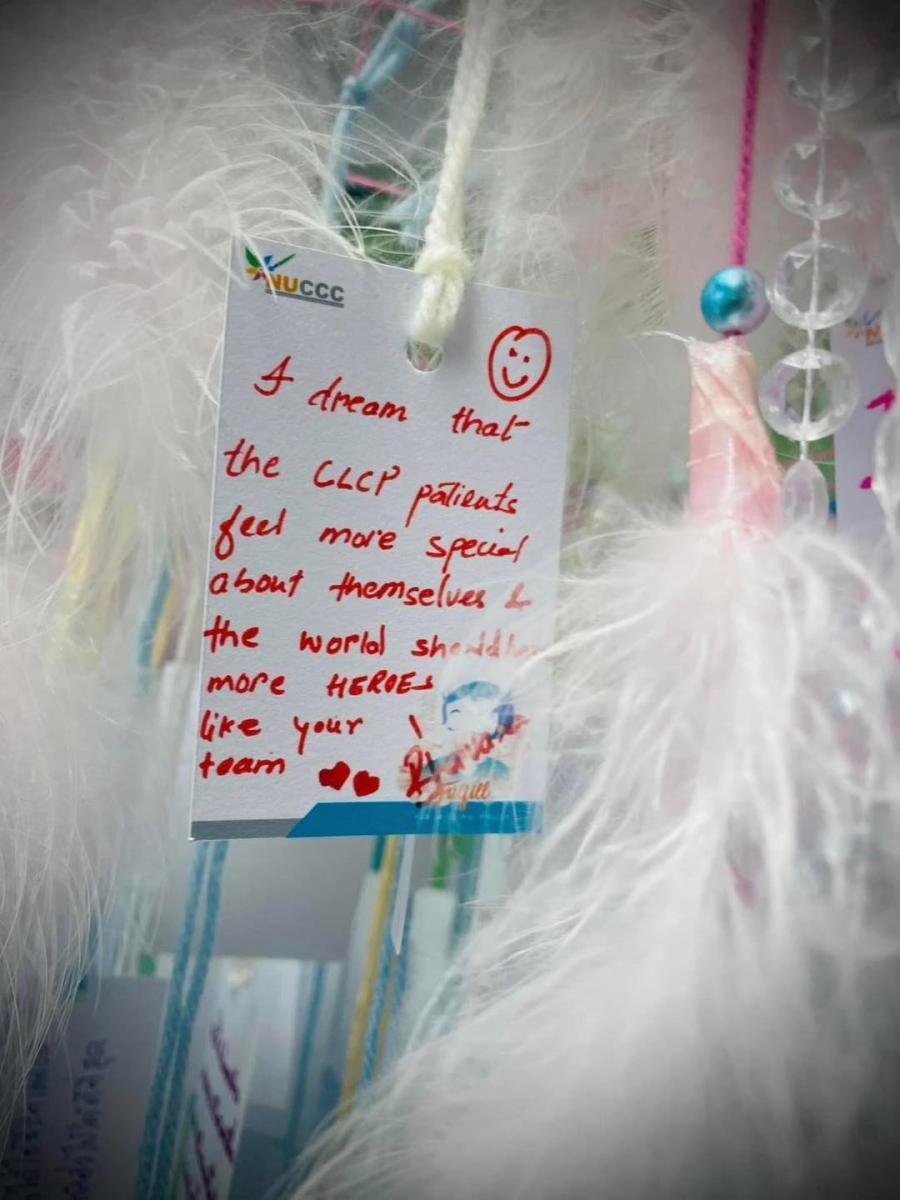 NUCCC
I dream that
the CLCP patients
feel more special
about themselves &
the world should
more HEROES
like your
team